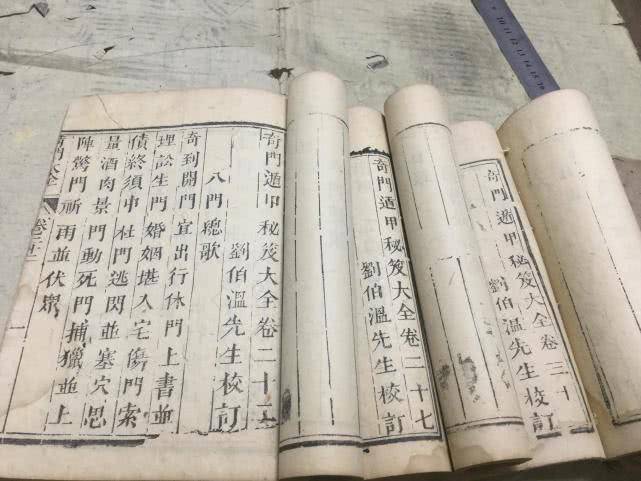 奇門遁甲秘笈大全卷三十
劉伯溫先生校訂
奇門遁甲秘笈大全卷二十七
劉伯溫先生校訂
奇門遁甲秘笈大全卷二十
劉伯溫先生校訂
八門總歌
奇到開門宜出行休門上書並
理訟生門婚姻堪入宅傷門索
債終須中杜門逃閃並塞穴思
量酒肉景門動死門捕獵並上
陣驚門祈雨並伏眾
奇門大全 卷 一